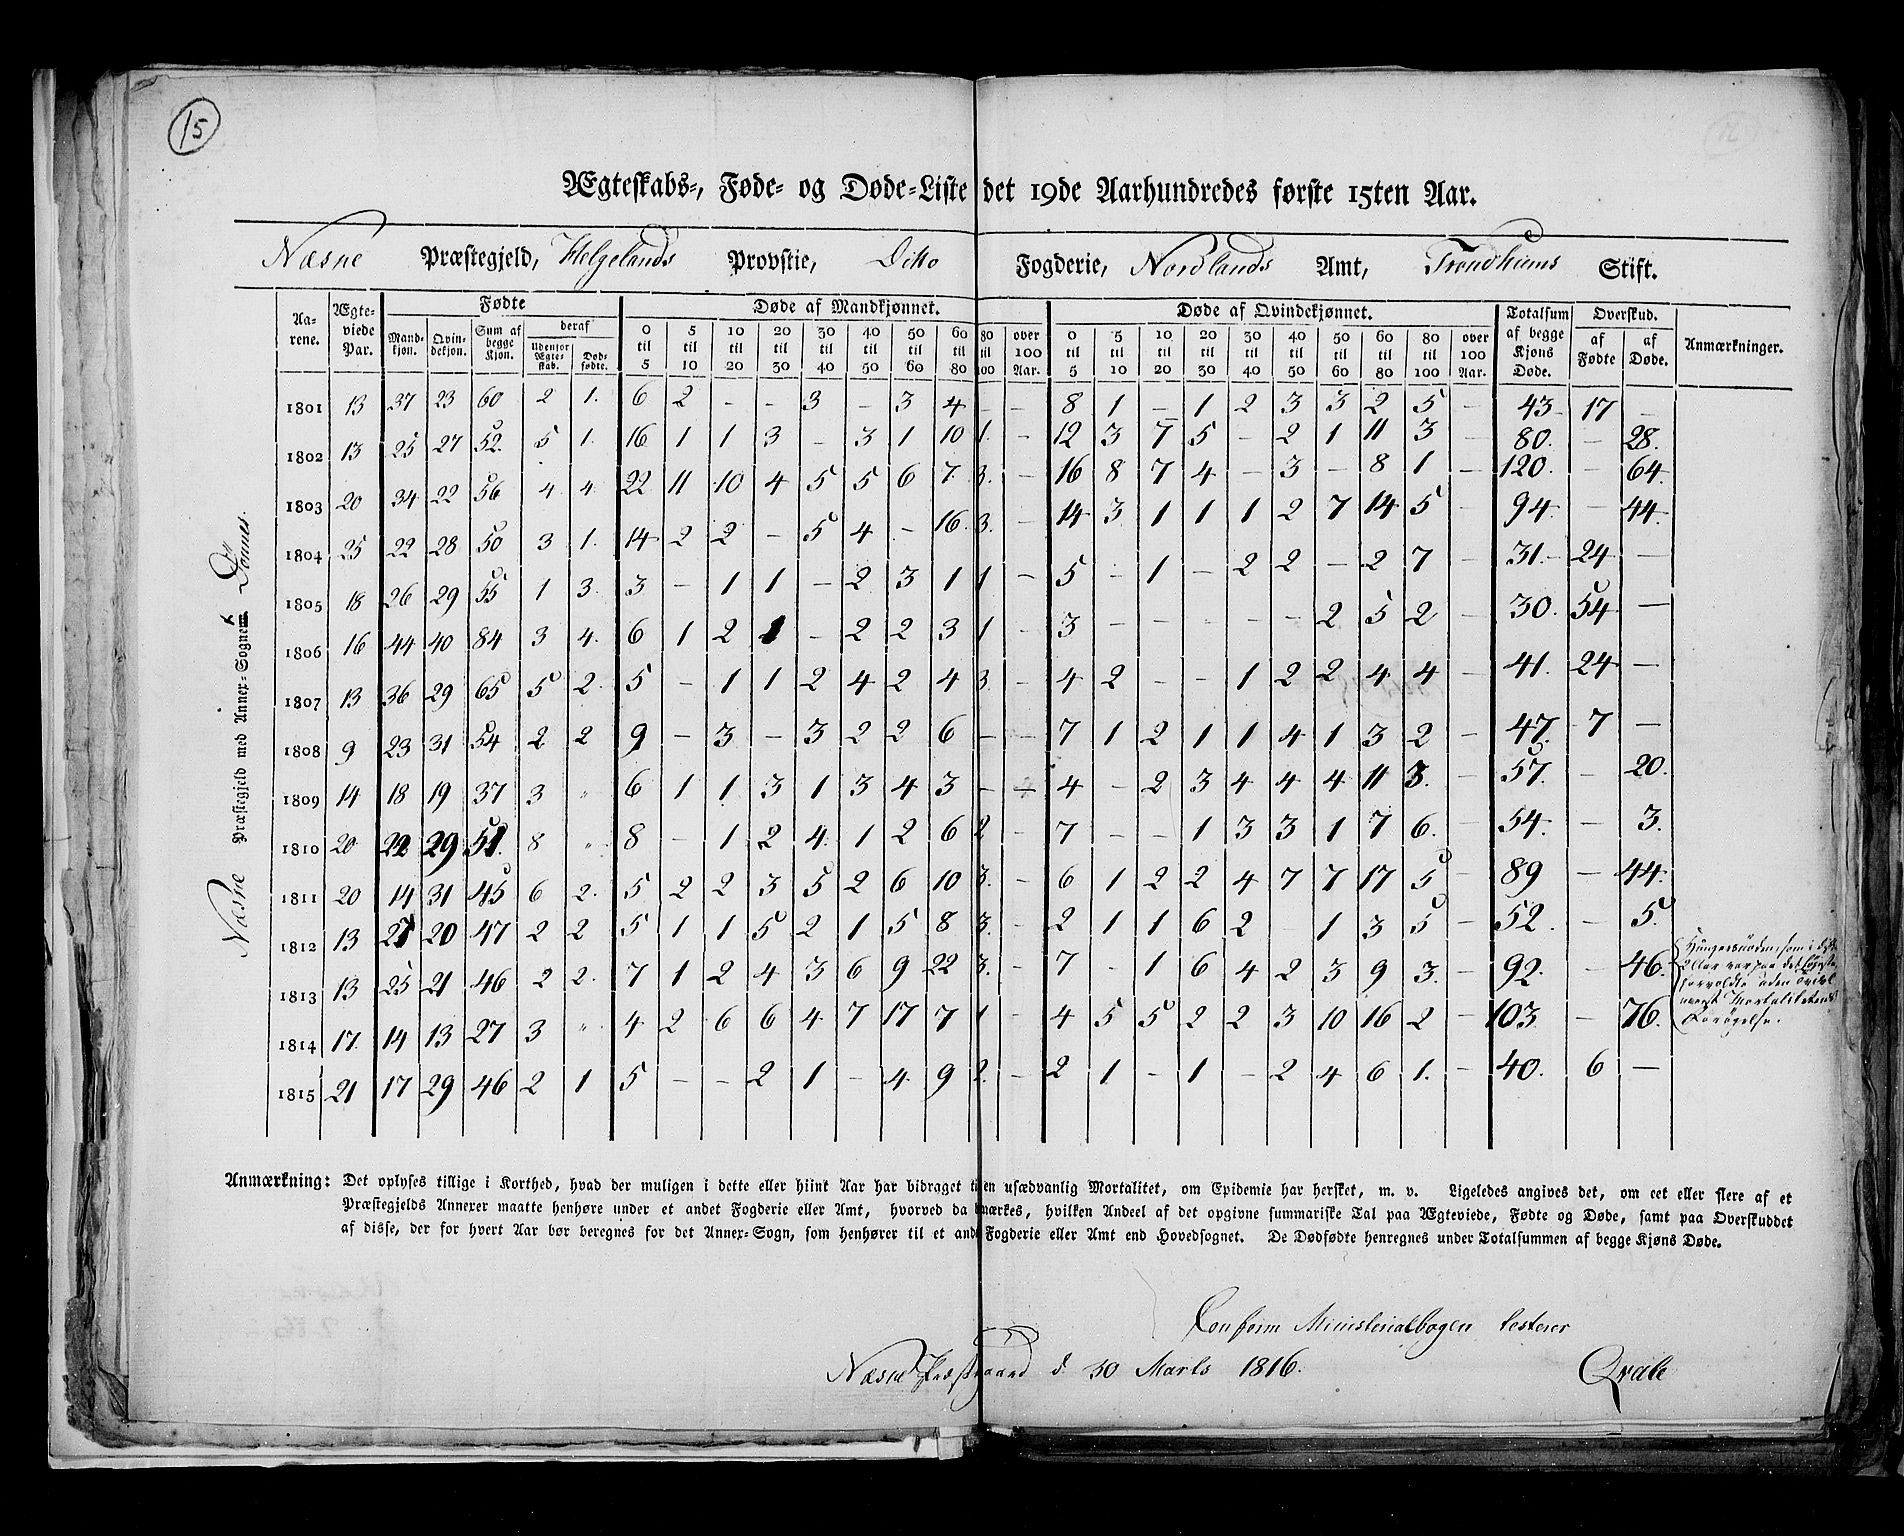 15
Ægteskabs-, Føde- og Døde-Liste det 19de Aarhundredes første 15ten Aar.
Næsne Præstegjeld, Helgelands Provstie, Ditto Fogderie, Nordlands Amt, Trondhiems Stift.
Næsne Præstegjeld med Annex-Sogne Dönnes.
Aarene. | Ægteviede Par. | Fødte | Døde af Mandkjønnet. | Døde af Qvindekjønnet. | Totalsum af begge Kjøns Døde. | Overskud. | Anmærkninger.
Mandkjøn. | Qvindekjøn. | Sum af begge Kjøn. | deraf | Udenfor Ægteskab. | Dødfødte. | 0 til 5 | 5 til 10 | 10 til 20 | 20 til 30 | 30 til 40 | 40 til 50 | 50 til 60 | 60 til 80 | 80 til 100 | over 100 Aar. | 0 til 5 | 5 til 10 | 10 til 20 | 20 til 30 | 30 til 40 | 40 til 50 | 50 til 60 | 60 til 80 | 80 til 100 | over 100 Aar. | af Fødte | af Døde.
1801 13 37 23 60 2 1. 6 2 – – 3 – 3 4 – – 8 1 – 1 2 3 3 2 5 – 43 17 –
1802 13 25 27 52. 5 1. 16 1 1 3 – 3 1 10 1. – 12 3 7 5 – 2 1 11 3 – 80. – 28.
1803 20 34 22 56 4 4. 22 11 10 4 5 5 6 7. 3. – 16 8 7 4 – 3 – 8 1 – 120. – 64.
1804 25 22 28 50 3 1. 14 2 2 – 5 4 – 16. 3. – 14 3 1 1 1 2 7 14 5 – 94 – 44.
1805 18 26 29 55 1 3. 3 – 1 1 – 2 3 1 1 – 5 – 1 – 2 2 – 2 7 – 31. 24 –
1806 16 44 40 84 3 4. 6 1 2 1 – 2 2 3 1 – 3 – – – – – 2 5 2 – 30. 54 –
1807 13 36 29 65 5 2. 5 – 1 1 2 4 2 4 3. – 4 2 – – 1 2 2 4 4 – 41. 24 –
1808 9 23 31 54 2 2 9 – 3 – 3 2 2 6 – – 7 1 2 1 1 4 1 3 2 – 47. 7 –
1809 14 18 19 37 3 " 6 1 1 3 1 3 4 3 – – 4 – 2 3 4 4 4 11 3. – 57. – 20.
1810 20 22 29 51. 8 " 8 – 1 2 4 1 2 6 2 – 7 – – 1 3 3 1 7 6. – 54. – 3.
1811 20 14 31 45 6 2. 5 2 2 3 5 2 6 10 3. – 6 1 2 2 4 7 7 17 5 – 89 – 44.
1812 13 27 20 47 2 2 5 1 1 5 2 1 5 8 3. – 2 1 1 6 2 1 3 5 – 52. – 5.
1813 13 25 21 46 2 2. 7 1 2 4 3 6 9 22 3. – 7 – 1 6 4 2 3 9 3. – 92. – 46.
1814 17. 14 13 27 3 " 4 2 6 6 4 7 17 7 1 – 4 5 5 2 2 3 10 16 2 – 103. – 76.
1815 21 17 29 46 2 1 5 – – 2 1 – 4. 9 2. – 2 1 – 1 – 2 4 6 1. – 40. 6 –
Hungersnöden, som i
2 Aar var paa det
forvoldte
Mortalitetens
Forögelse.
Anmærkning: Det oplyses tillige i Korthed, hvad der muligen i dette eller hiint Aar har bidraget til en usædvanlig Mortalitet, om Epidemie har hersket, m. v. Ligeledes angives det, om eet eller flere af et
Præstegjelds Annexer maatte henhøre under et andet Fogderie eller Amt, hvorved da bemærkes, hvilken Andeel af det opgivne summariske Tal paa Ægteviede, Fødte og Døde, samt paa Overskuddet
af disse, der for hvert Aar bør beregnes for det Annex-Sogn, som henhører til et andet Fogderie eller Amt end Hovedsognet. De Dødfødte henregnes under Totalsummen af begge Kjøns Døde.
Conform Ministerialbogen testerer
Næsne Præstgaard d. 30 Marts 1816. Qvale